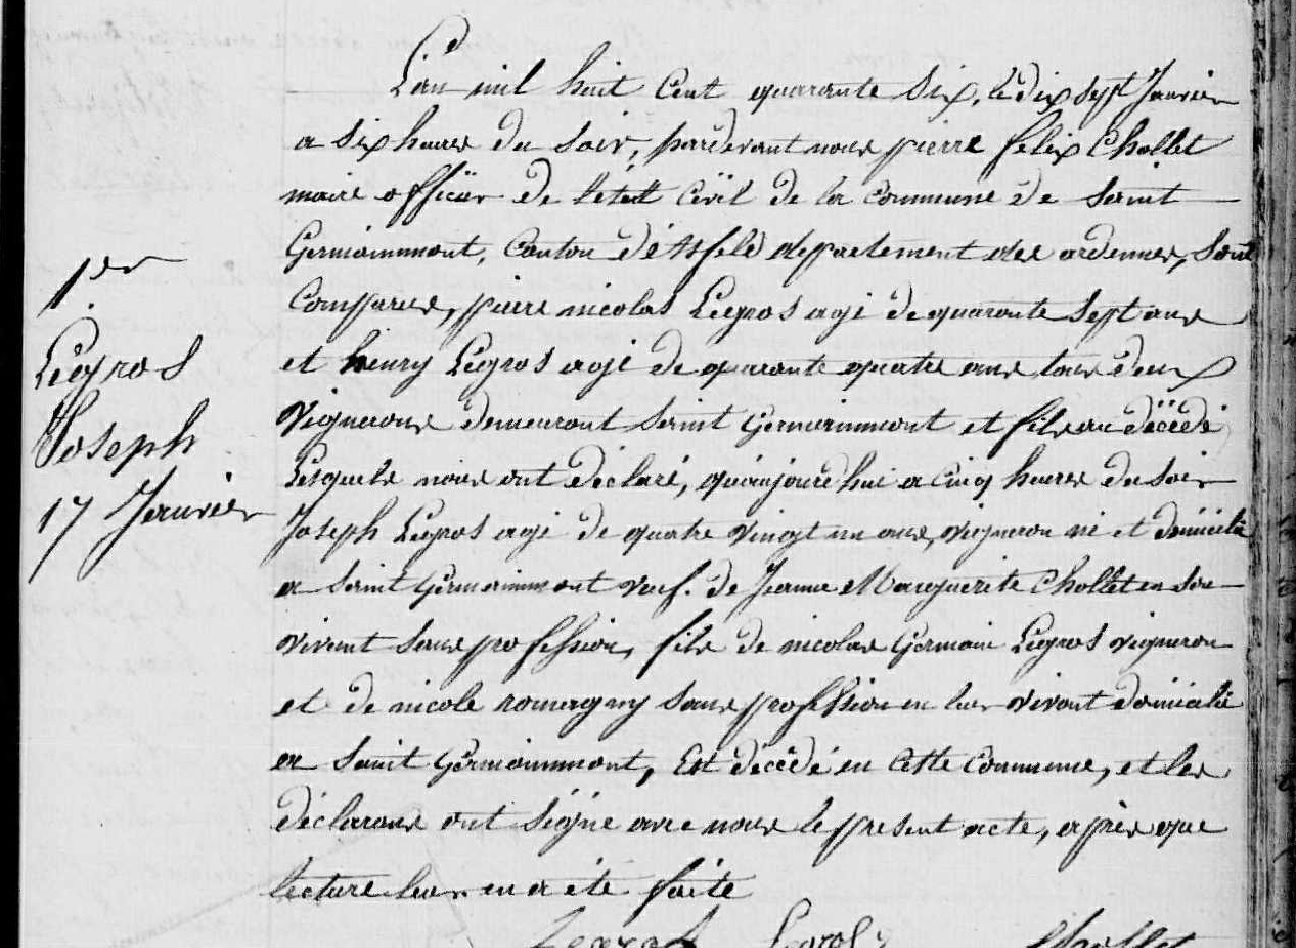 L'an mil huit cent quarante six, le dix sept Janvier
a six heures du soir, pardevant nous pierre felix Chollet
maire officier de l'état civil de la commune de saint
Germainmont, Canton d'Asfeld departement des ardennes, sont
Comparus, pierre nicolas Legros agé de quarante sept ans
et henry Legros agé de quarante quatre ans tous deux
Vignerons demeurant saint Germainmont et fils au décédé
Lesquels nous ont déclaré, qu'aujourd'hui a cinq heures du soir
Joseph Legros agé de quatre vingt un ans, vigneron né et domicilié
a saint Germainmont veuf. de Jeanne Marguerite Chollet en son
vivant sans profession, fils de nicolas Germain Legros vigneron
et de nicole romagny sans profession en leur vivant domicilié
a saint Germainmont, Est décédé en cette commune, et les
déclarans ont signé avec nous le present acte, après que
lecture leur en a été faite
1er
Legros
Joseph
17 Janvier
Legros Legros Chollet